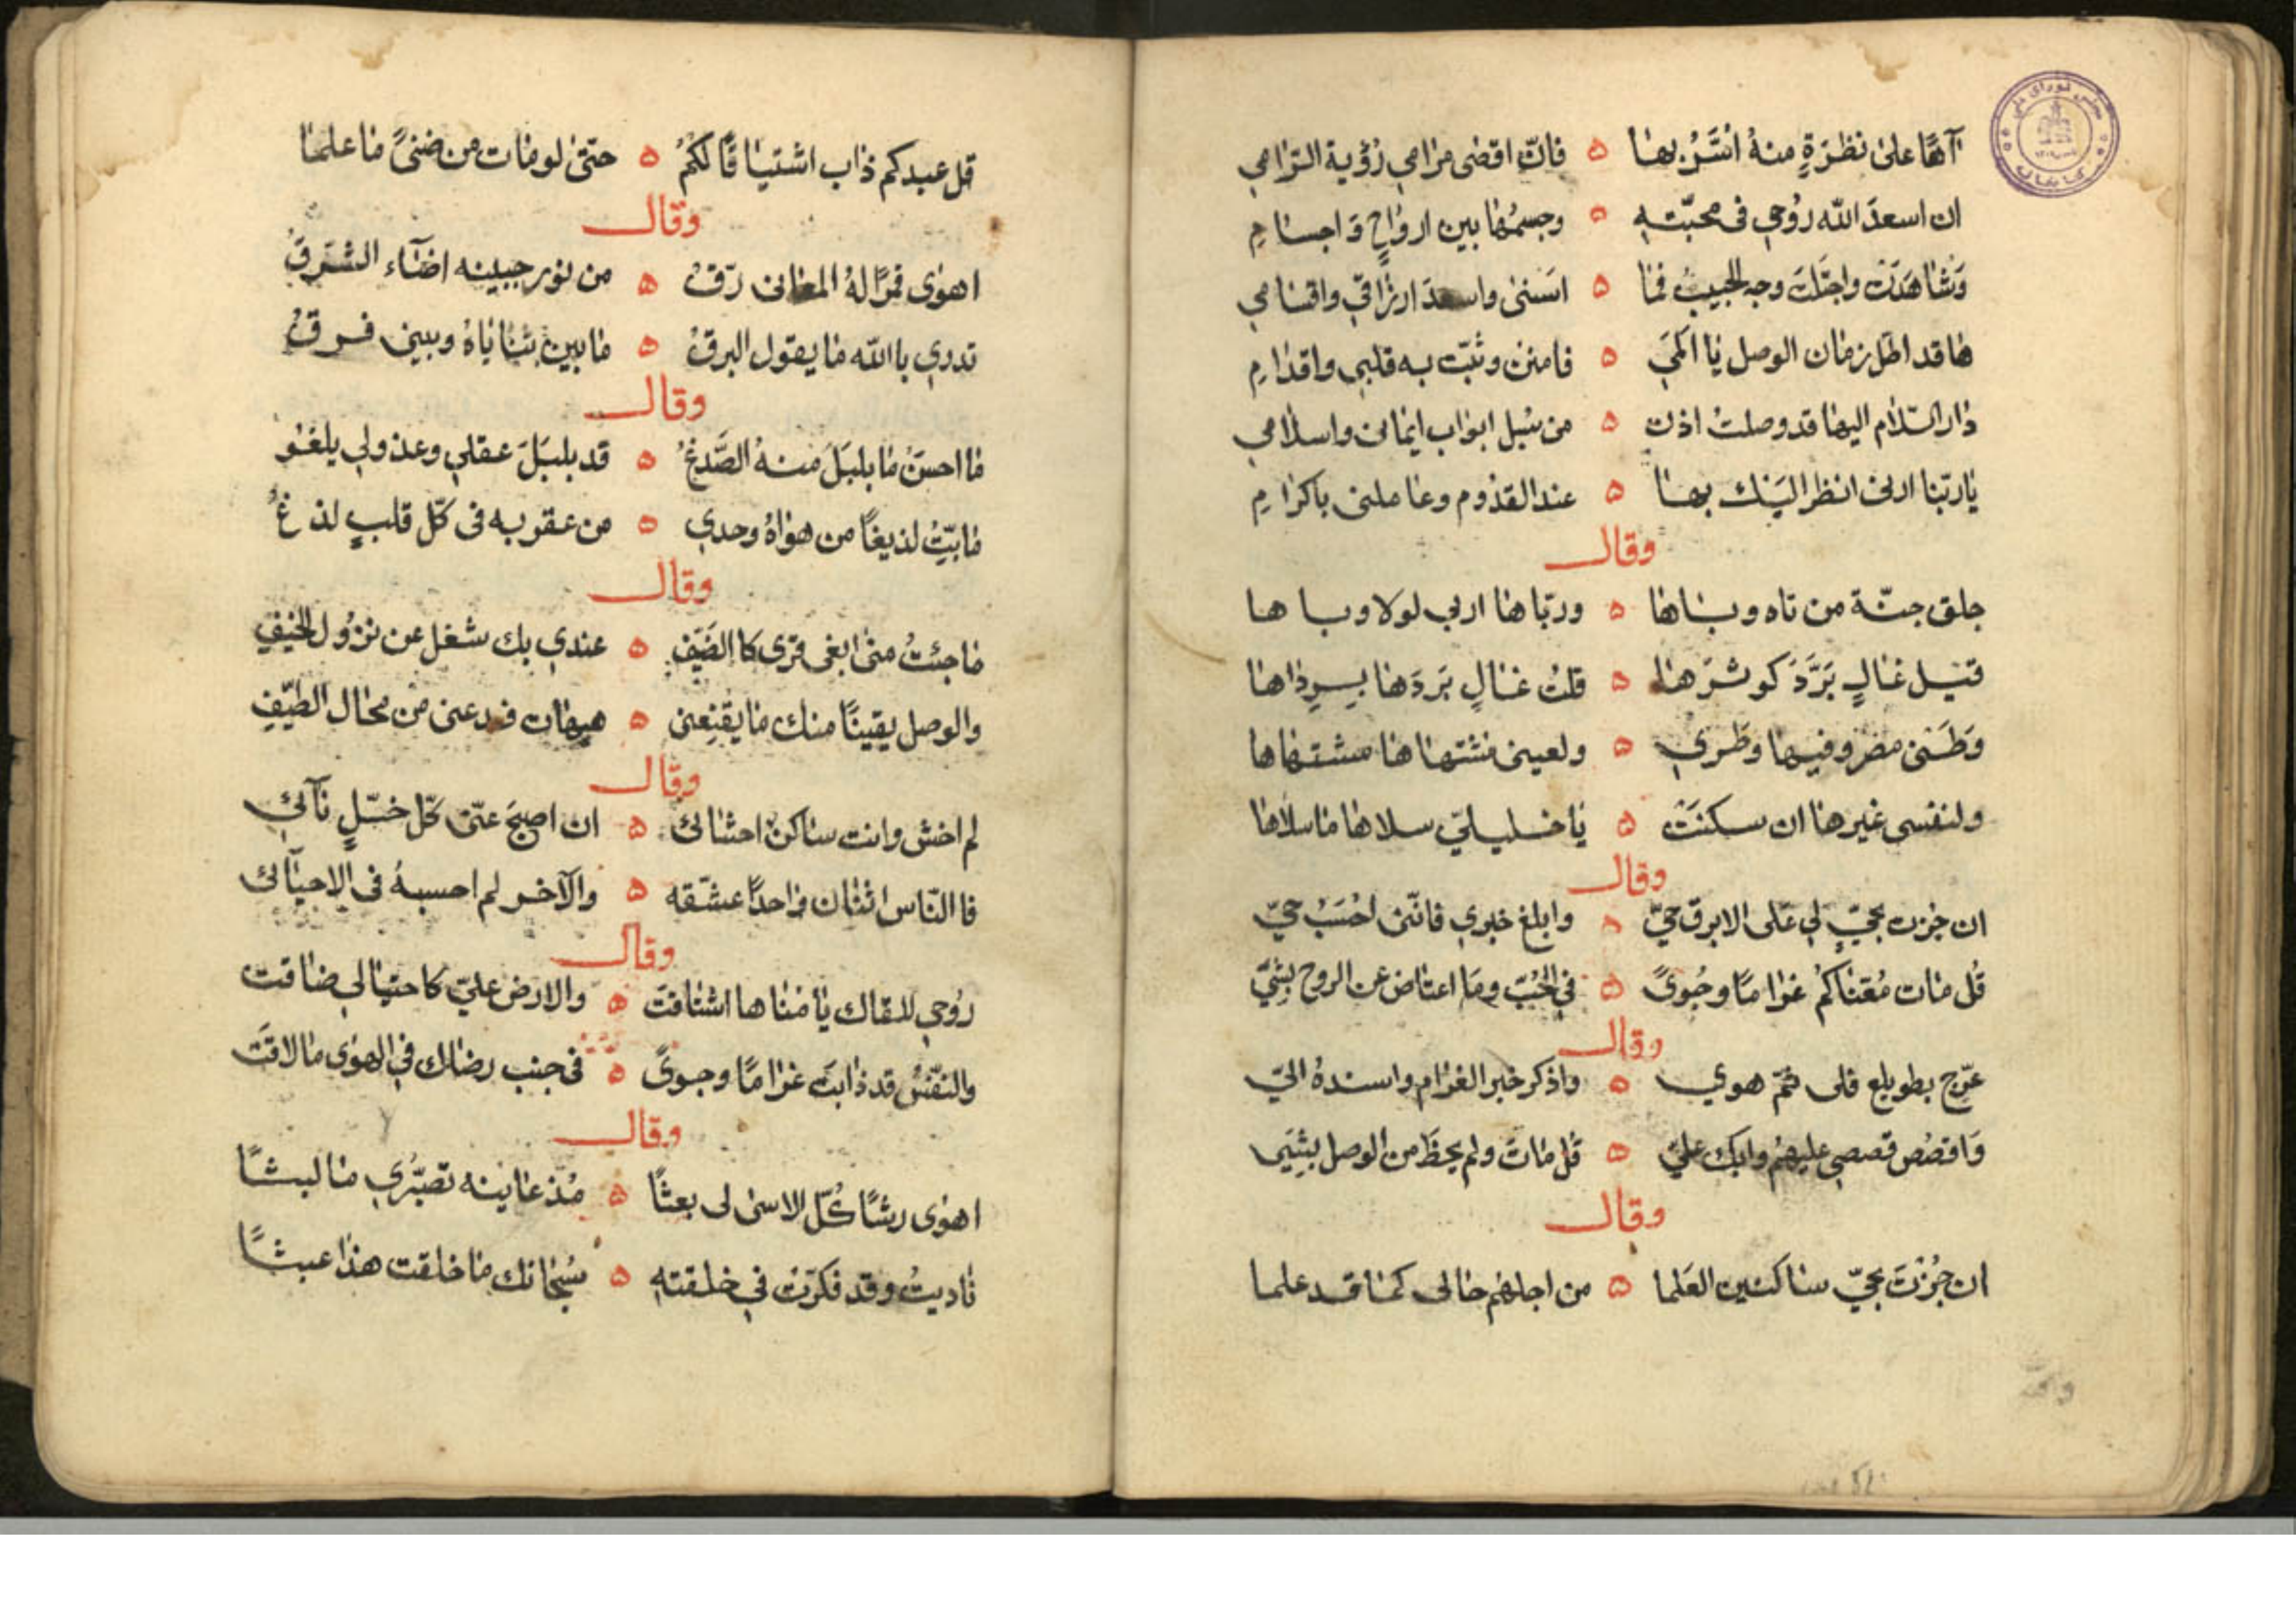 آهًا على نظرة منه اسرّ بها ۵ فانّ اقضى مرامي رؤية الرامي
ان اسعد الله روحي في محبّته ۵ وجسمها بين ارواحٍ واجسامِ
وشاهدت واجتلت وجه الحبيب فما ۵ اسنى واسعد ارزاقي واقسامي
ها قد اظل زمان الوصل يا املي ۵ فامنن وثبّت به قلبي واقدامِ
دار السّلام اليها قد وصلت اذن ۵ من سبل ابواب ايمانى واسلامي
يا ربّنا ارنى انظر اليك بها ۵ عند القدوم وعاملنى باكرامِ
وقال
جلق جنّة من تاه وباهَا ۵ ورباها اربي لولا وباها
قيل غالٍ بَرَّدَ كوثرَها ۵ قلت غالٍ بَرَدَها برداها
وَطَنى مصر وفيها وَطَري ۵ ولعينى مشتهاها مشتهاها
ولنفسى غيرها ان سكنَت ۵ يا خليليّ سلاها ما سلاها
وقال
ان جزت بحيٍّ لي على الابرق حيّ ۵ وابلغ خبري فانّنى احْسَبُ حيّ
قُل مات مُعَنّاكم غرامًا وجُوىً ۵ في الحُبّ وما اعتاض عن الروح بشيّ
وقال
عرّج بطويلع فلى ثمّ هوي ۵ واذكر خبر الغرام واسنده اليّ
وَاقصُص قصصي عليهم وابك عليّ ۵ قل مات ولم يحظَ من الوصل بشيى
وقال
ان جُزْتَ بحيّ ساكنين العَلما ۵ من اجلهم حالى كما قد علما
قل عبدكم ذاب اشتياقًا لكمُ ۵ حتّى لو مات من ضنىً ما علما
وقال
اهوى قمرًا لهُ المعانى رقّ ۵ من نور جبينه اضآء الشرق
تدري باالله ما يقول البرق ۵ ما بين ثناياهُ وبينى فرق
وقال
ما احسن ما بلبَلَ منهُ الصَّدغُ ۵ قد بلبَلَ عقلي وعذولي يلغو
ما بتّ لذيغًا من هواهُ وحدي ۵ من عقربه في كلّ قلبٍ لذغُ
وقال
ما جئتُ منى ابغى قرى كا الضَيفِ ۵ عندي بك شغل عن نزول الخيفِ
والوصل يقينًا منك ما يقنِعنى ۵ هيهات فدعنى من محال الطيّفِ
وقال
لم اخش وانت ساكن احشائى ۵ ان اصبحَ عنّى كلّ خلٍّ نآئي
فا النّاس اثنان واحدًا عشّقه ۵ والآخر لم احسبهُ في الاحيآئى
وقال
روحي للقاك يا مناها اشتاقت ۵ والارض عليّ كاحتيالي ضاقت
والنّفسُ قد ذابت غرامًا وجوىً ۵ في جنب رضاك في الهوى ما لاقت
وقال
اهوى رشًا كُلّ الاسى لى بعثا ۵ مُذ عاينه تصبّرُي ما لبثًا
ناديتُ وقد فكّرت في خلقته ۵ سُبحانك ما خلقت هذا عبثًا